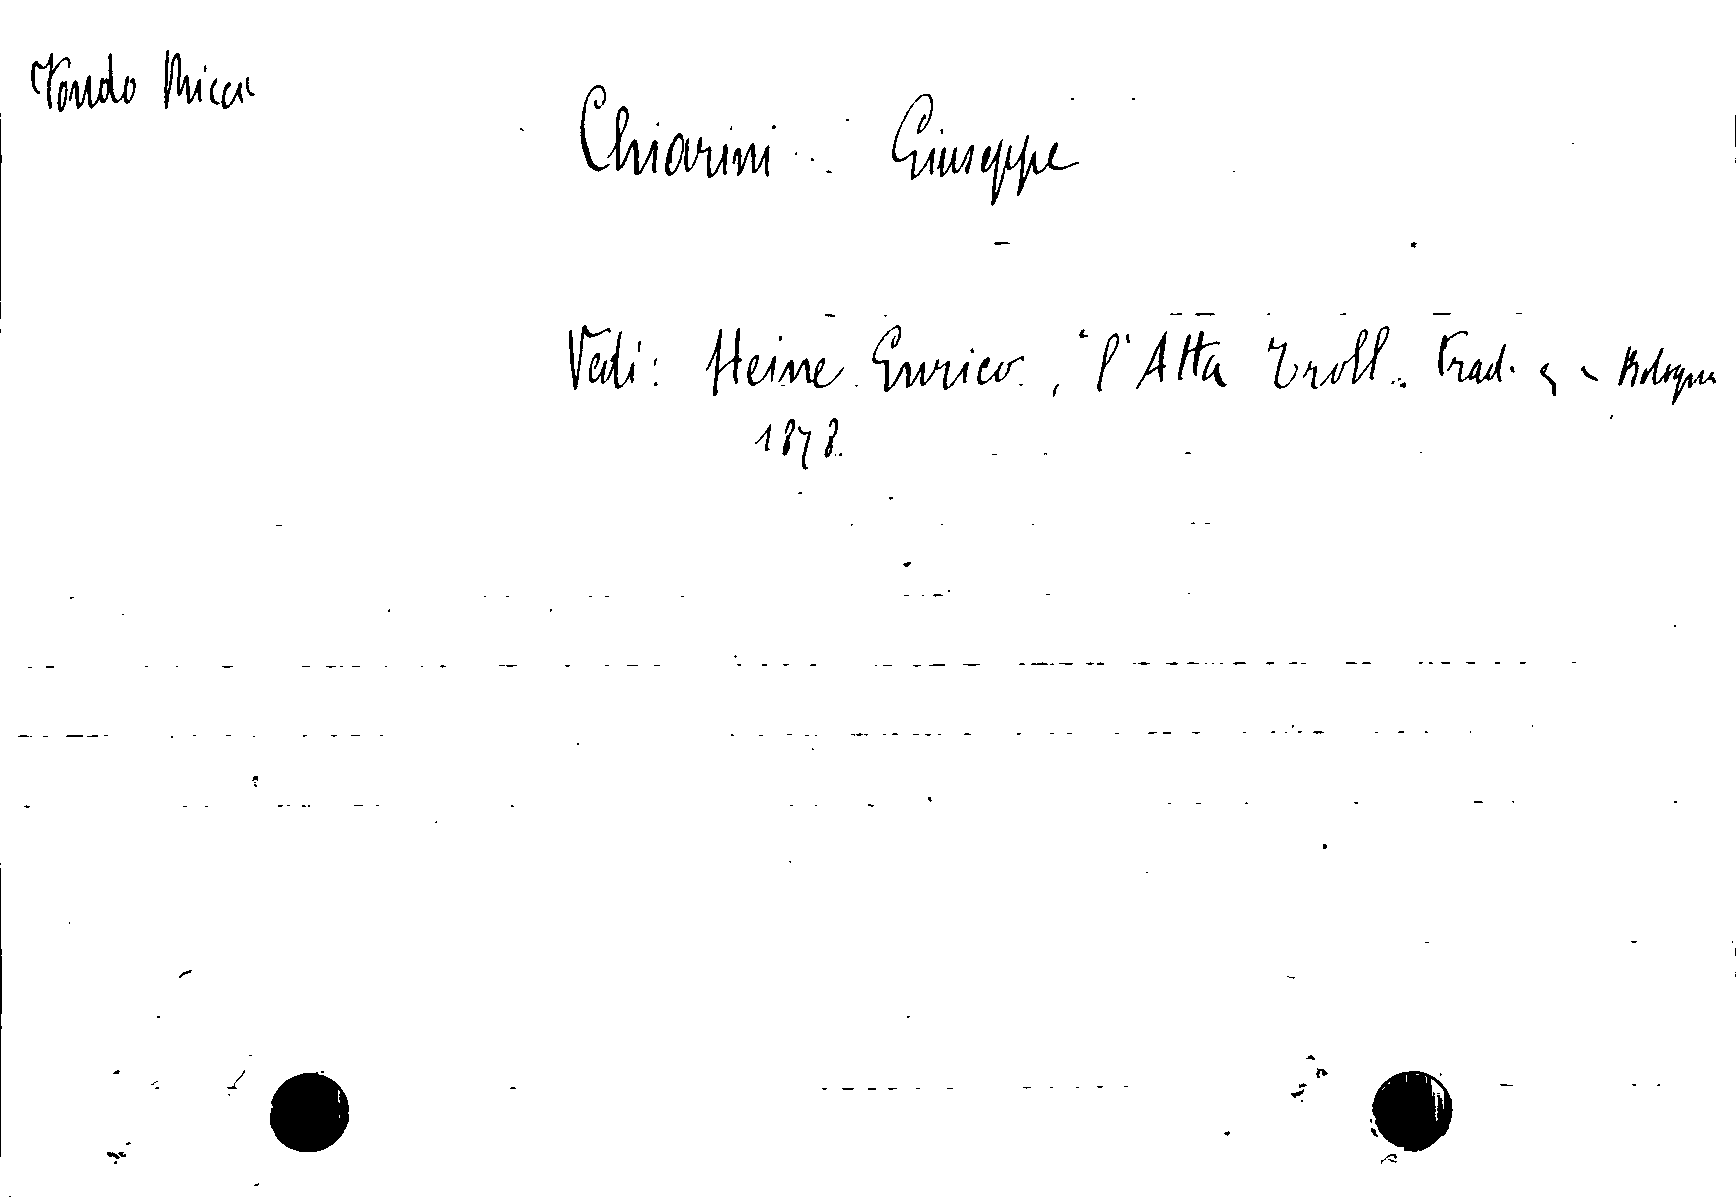 Fondo Ricci
Chiarini Giuseppe
Vedi: Heine Enrico. , l'Atta Troll. Trad. Bologna
1878.